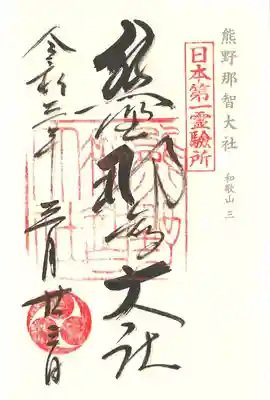 熊野那智大社 和歌山 三
日本第一霊驗所
熊野那智大社
三月廿三日